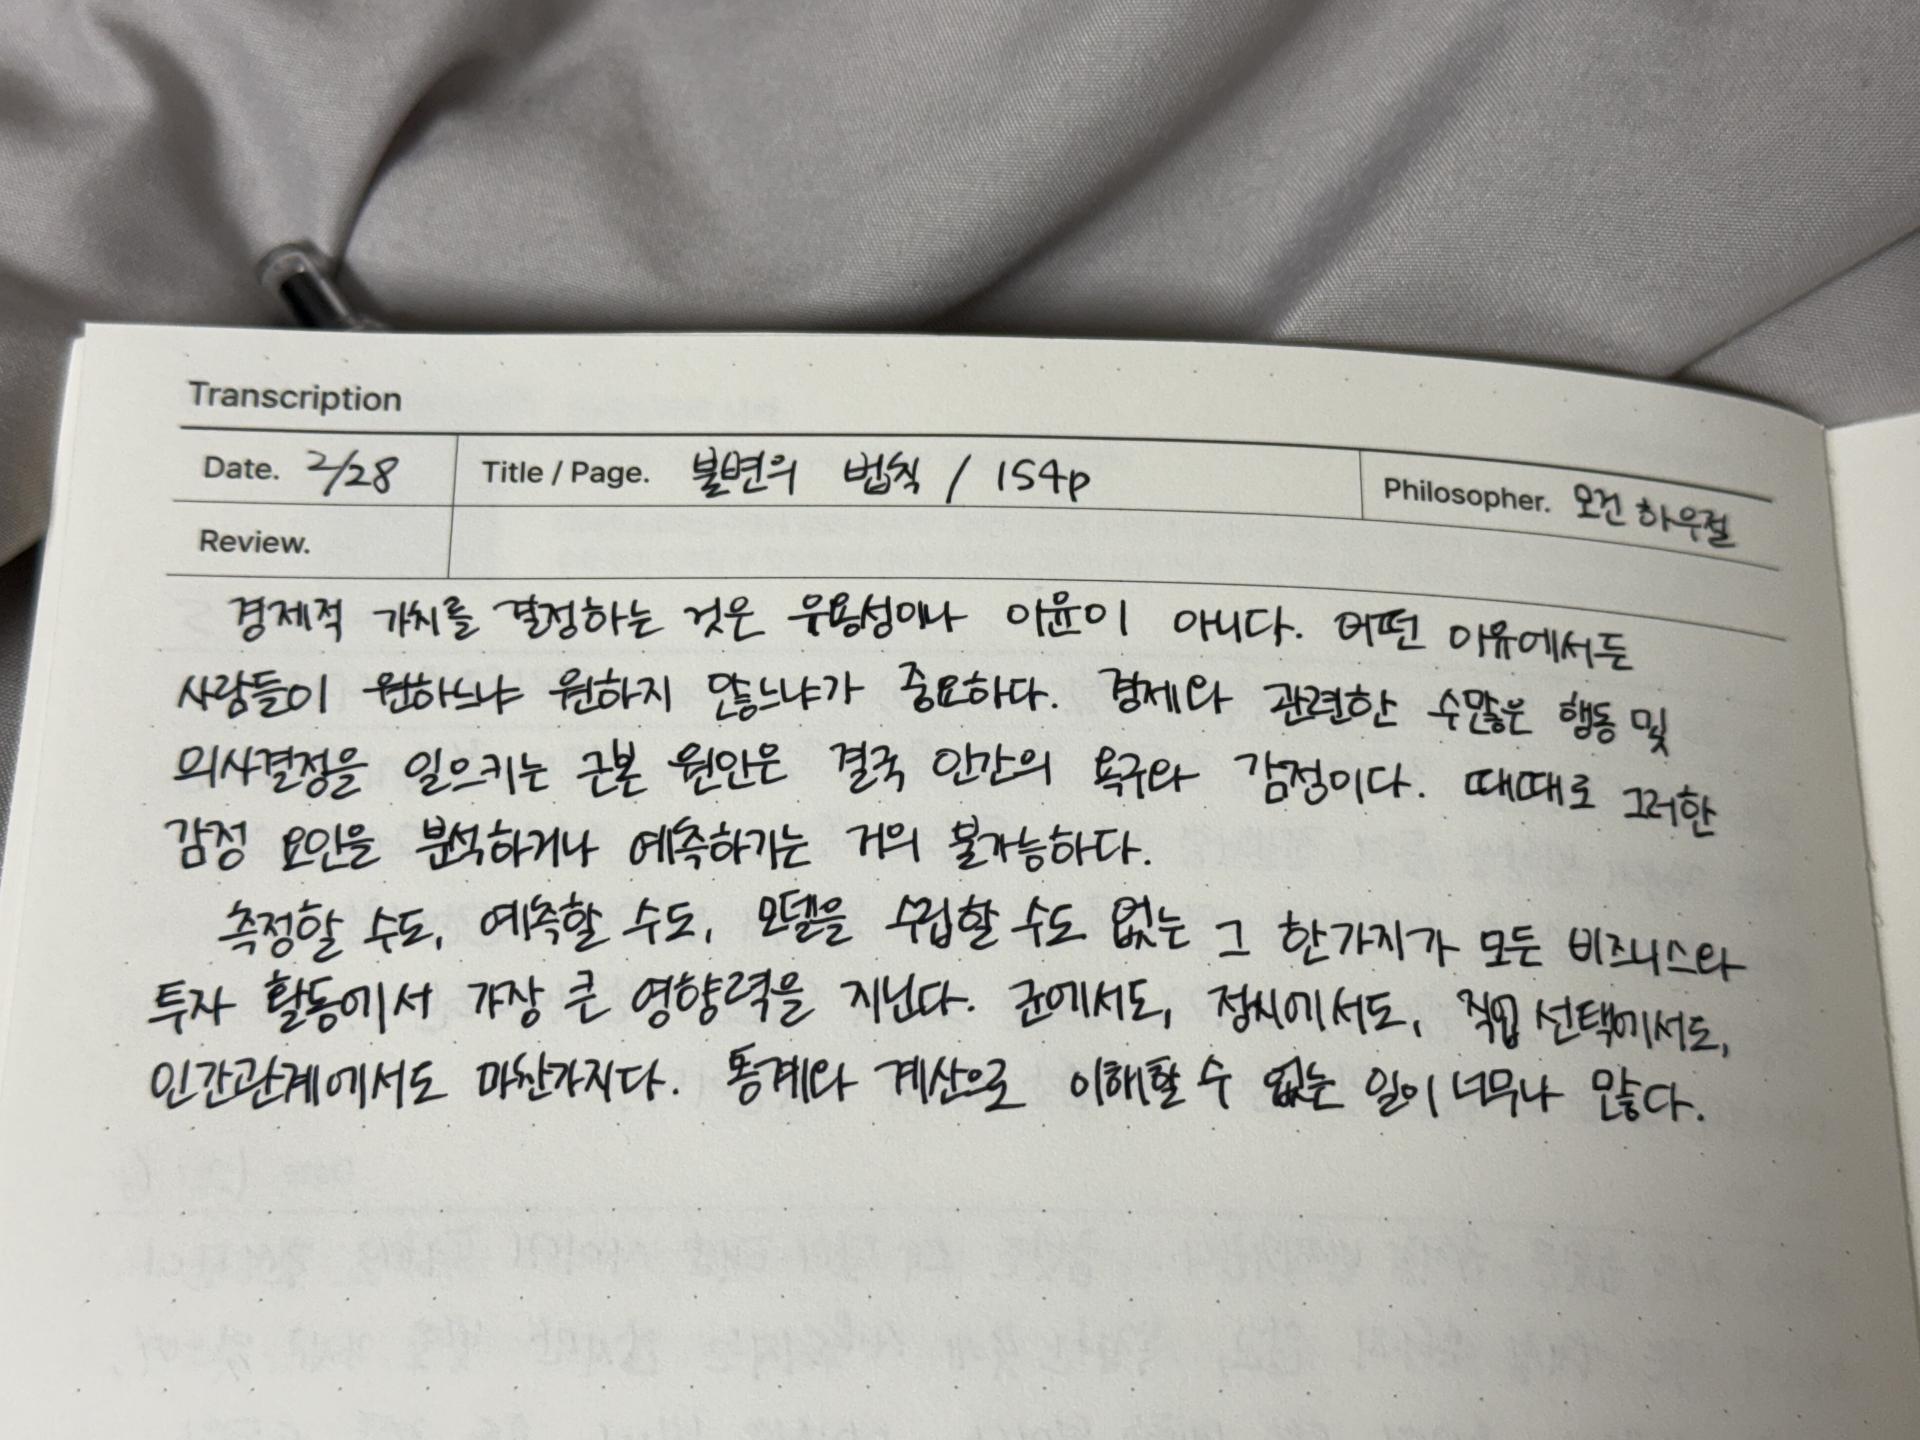 Transcription
Date. 2/28 Title / Page. 불변의 법칙 / 154p Philosopher. 모건 하우절
Review.
경제적 가치를 결정하는 것은 유용성이나 이윤이 아니다. 어떤 이유에서든
사람들이 원하느냐 원하지 않느냐가 중요하다. 경제와 관련한 수많은 행동 및
의사결정을 일으키는 근본 원인은 결국 인간의 욕구와 감정이다. 때때로 그러한
감정 요인을 분석하거나 예측하기는 거의 불가능하다.
측정할 수도, 예측할 수도, 모델을 수립할 수도 없는 그 한가지가 모든 비즈니스와
투자 활동에서 가장 큰 영향력을 지닌다. 군에서도, 정치에서도, 직업 선택에서도,
인간관계에서도 마찬가지다. 통계와 계산으로 이해할 수 없는 일이 너무나 많다.